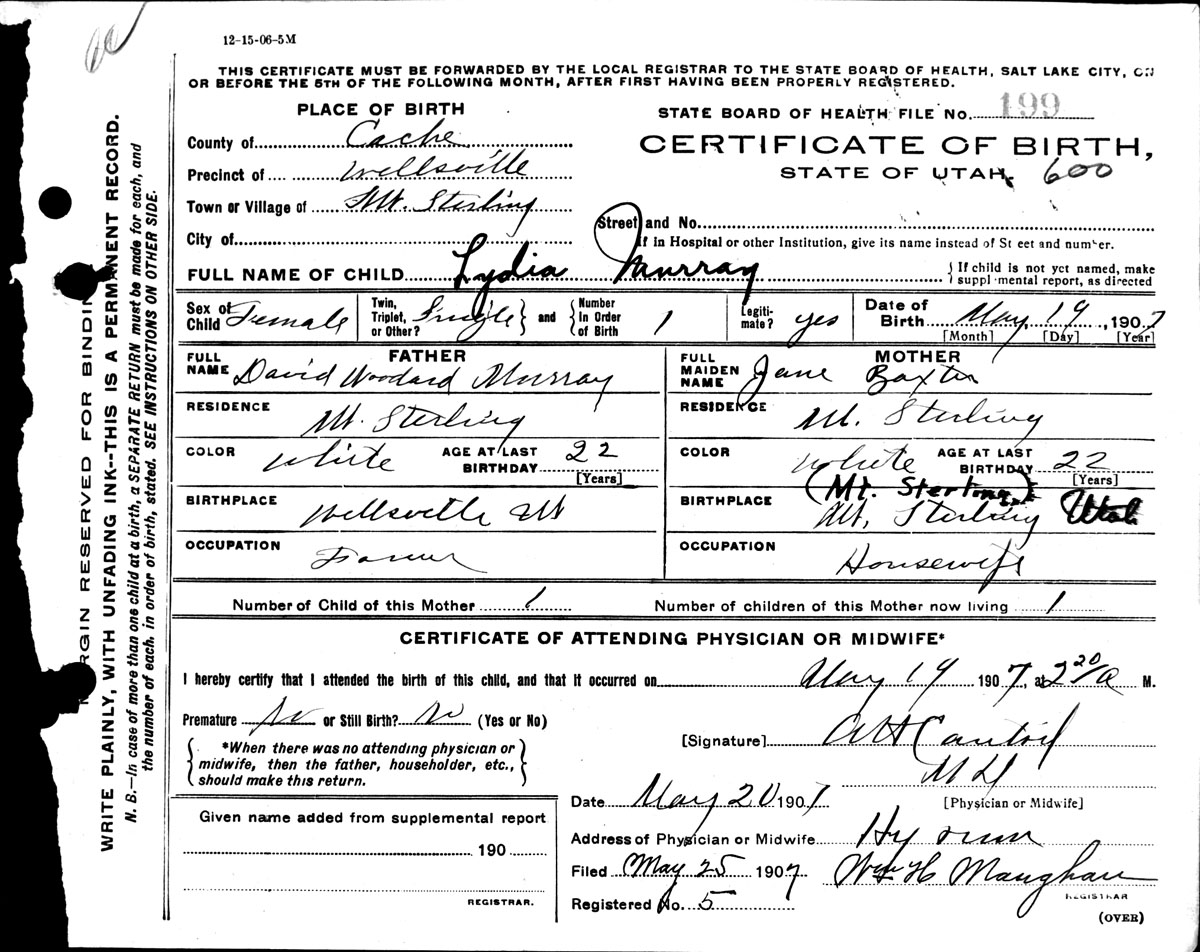 12-15-06-5M
THIS CERTIFICATE MUST BE FORWARDED BY THE LOCAL REGISTRAR TO THE STATE BOARD OF HEALTH, SALT LAKE CITY, ON
OR BEFORE THE 5TH OF THE FOLLOWING MONTH, AFTER FIRST HAVING BEEN PROPERLY REGISTERED.
PLACE OF BIRTH
STATE BOARD OF HEALTH FILE No. 199
County of Cache
CERTIFICATE OF BIRTH,
Precinct of Wellsville
STATE OF UTAH. 600
Town or Village of Mt. Sterling
Street and No.
City of
If in Hospital or other Institution, give its name instead of St eet and number.
FULL NAME OF CHILD Lydia Murray
{ If child is not yet named, make suppl mental report, as directed
Sex of Child Female
Twin, Triplet, or Other? Single } and { Number In Order of Birth 1
Legiti-mate? yes
Date of Birth May, 19, 1907
[Month] [Day] [Year]
FATHER
FULL NAME David Woodard Murray
MOTHER
FULL MAIDEN NAME Jane Baxter
RESIDENCE Mt. Sterling
RESIDENCE Mt. Sterling
COLOR White AGE AT LAST BIRTHDAY 22 [Years]
COLOR White AGE AT LAST BIRTHDAY 22 [Years]
BIRTHPLACE Wellsville Ut
BIRTHPLACE (Mt. Sterling) Mt. Sterling Utah
OCCUPATION Farmer
OCCUPATION Housewife
Number of Child of this Mother 1
Number of children of this Mother now living 1
CERTIFICATE OF ATTENDING PHYSICIAN OR MIDWIFE*
I hereby certify that I attended the birth of this child, and that it occurred on May 19 1907, at 2 20/a M.
Premature no or Still Birth? no (Yes or No)
{ *When there was no attending physician or midwife, then the father, householder, etc., should make this return. }
[Signature] M D
[Physician or Midwife]
Date May 20 1907
Given name added from supplemental report
190
REGISTRAR.
Address of Physician or Midwife Hyrum
Filed May 25 1907 Wm H Maughan
REGISTRAR
Registered No. 5
(OVER)
MARGIN RESERVED FOR BINDING
WRITE PLAINLY, WITH UNFADING INK--THIS IS A PERMANENT RECORD.
N. B.—In case of more than one child at a birth, a SEPARATE RETURN must be made for each, and
the number of each, in order of birth, stated. SEE INSTRUCTIONS ON OTHER SIDE.